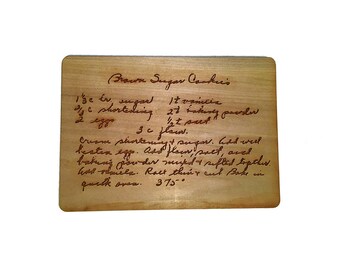 Brown Sugar Cookies
1 ½ c br sugar 1 t vanilla
¾ c shortening 2 t baking powder
2 eggs ½ t salt
3 c flour
Cream shortening & sugar. Add well
beaten eggs. Add flour, salt, and
baking powder mixed & sifted together.
Add vanilla. Roll thin & cut. Bake in
quick oven. 375°